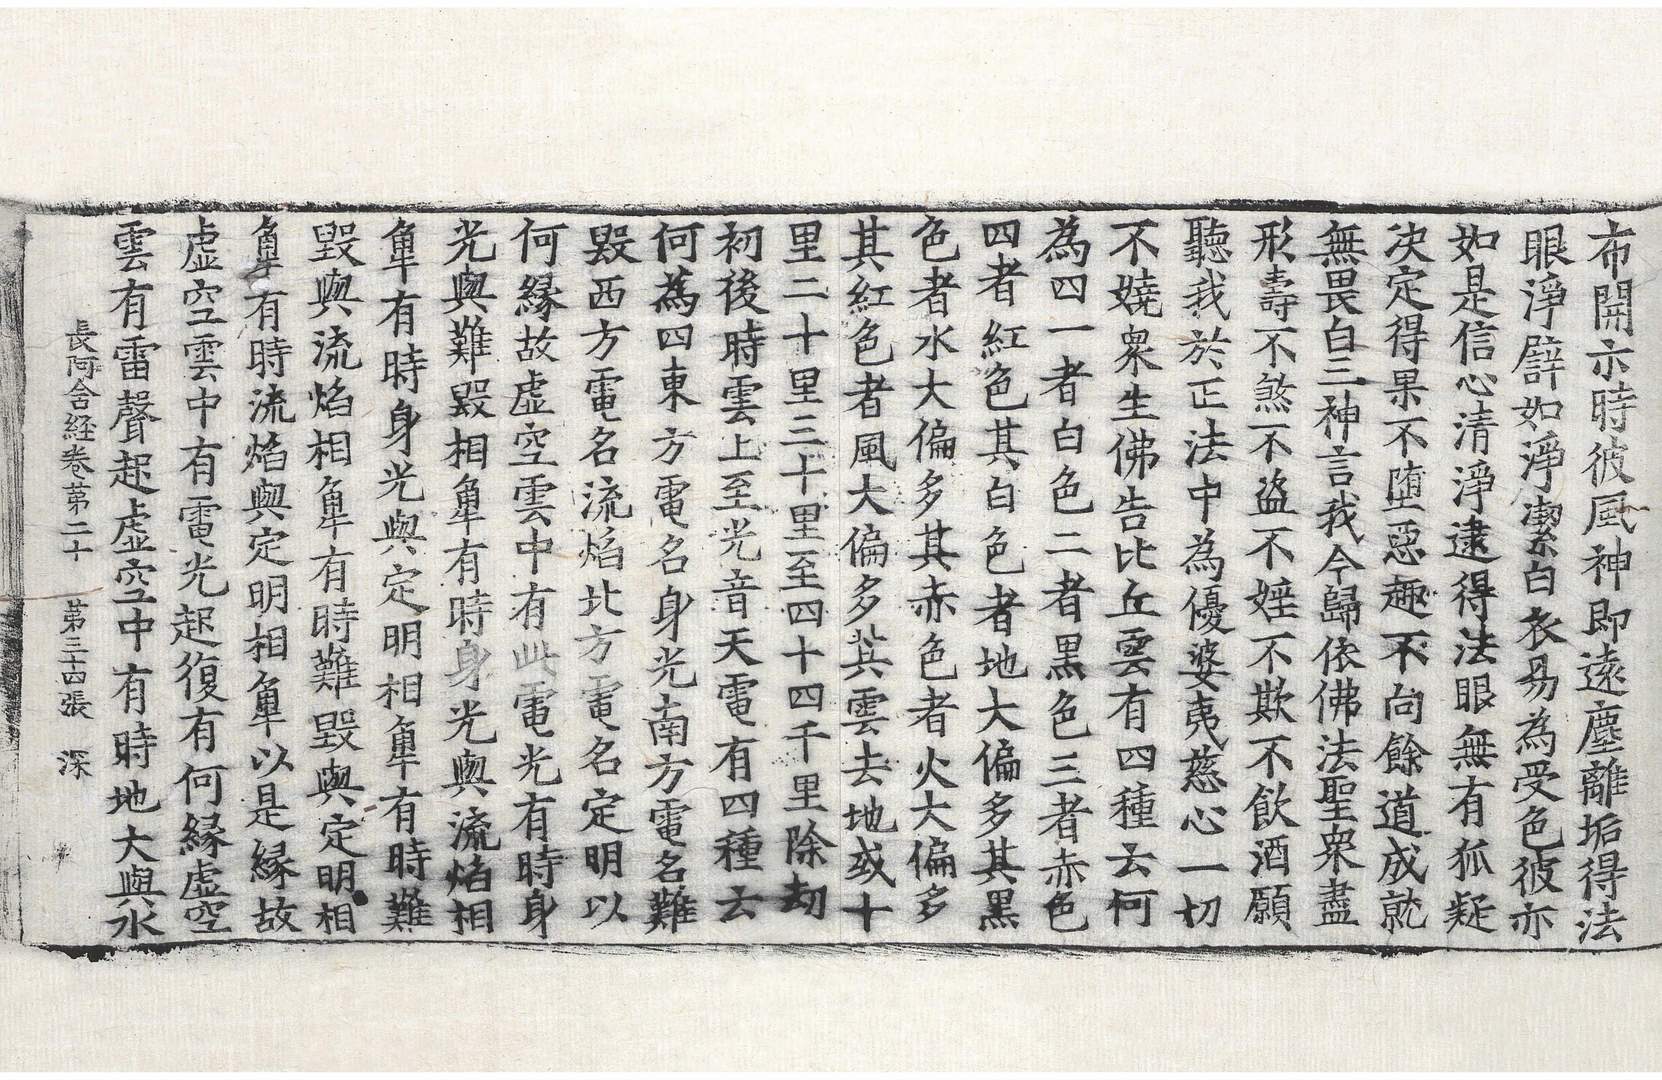 布開示時彼風神即遠塵離垢得法
眼淨譬如淨潔白衣易為受色彼亦
如是信心清淨逮得法眼無有狐疑
決定得果不墮惡趣不向餘道成就
無畏白三神言我今歸依佛法聖眾盡
形壽不煞不盗不婬不欺不飲酒願
聽我於正法中為優婆夷慈心一切
不嬈衆生佛告比丘雲有四種云何
為四一者白色二者黑色三者赤色
四者紅色其白色者地大偏多其黑
色者水大偏多其赤色者火大偏多
其紅色者風大偏多其雲去地或十
里二十里三十里至四十四千里除劫
初後時雲上至光音天電有四種云
何為四東方電名身光南方電名難
毀西方電名流焰北方電名定明以
何緣故虛空雲中有此電光有時身
光與難毀相觸有時身光與流焰相
觸有時身光與定明相觸有時難
毀與流焰相觸有時難毀與定明相
觸有時流焰與定明相觸以是緣故
虛空雲中有電光起復有何緣虛空
雲有雷聲起虛空中有時地大與水
長阿含經卷第二十　第三十四張　深